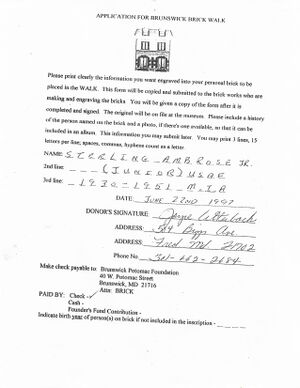 APPLICATION FOR BRUNSWICK BRICK WALK
Please print clearly the information you want engraved into your personal brick to be
placed in the WALK. This form will be copied and submitted to the brick works who are
making and engraving the bricks. You will be given a copy of the form after it is
completed and signed. The original will be on file at the museum. Please include a history
of the person named on the brick and a photo, if there's one available, so that it can be
included in an album. This information you may submit later. You may print 3 lines, 15
letters per line; spaces, commas, hyphens count as a letter.
NAME: STERLING - AMBROSE JR.
2nd line: _ _ _ (JUNIOR) USAF
3rd line: _ 1930-1951 _ M.I.A
DATE JUNE 22ND 1997
DONOR'S SIGNATURE:
ADDRESS: 504 Biggs Ave
ADDRESS: Fred Md 21702
Phone No 301-662-2684
Make check payable to: Brunswick Potomac Foundation
40 W. Potomac Street
Brunswick, MD 21716
Attn: BRICK
PAID BY: Check - ✓
Cash -
Founder's Fund Contribution -
Indicate birth year of person(s) on brick if not included in the inscription - _ _ _ _